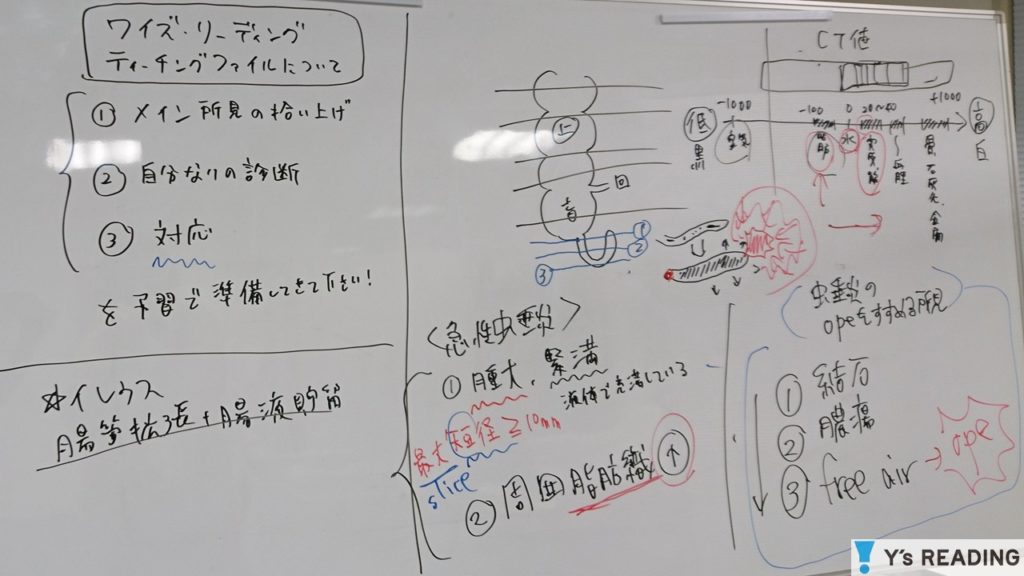 ワイズ・リーディング
ティーチングファイルについて
① メイン所見の拾い上げ
② 自分なりの診断
③ 対応
を予習で準備してきて下さい！
☆イレウス
腸管拡張+腸液貯留
上
回
盲
①
②
③
CT値
-1000 -100 0 20~40 +1000
低 高
黒 白
空気 脂肪 水 軟部組織 血腫 骨 石灰化 金属
<急性虫垂炎>
① 腫大、緊満
液体で充満している
最大短径≧10mm
slice
② 周囲脂肪織↑
虫垂炎の
opeをすすめる所見
① 結石
② 膿瘍
③ free air → ope
Y's READING